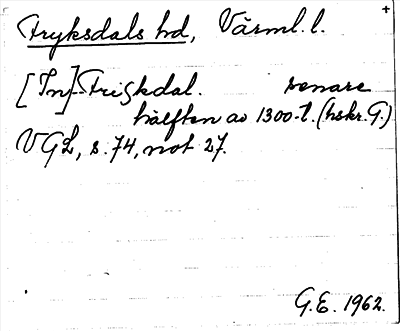 Fryksdals hd, Värml. l.
[In] Friʒkdal. senare
hälften av 1300-t. (hskr. G.)
VGL, s. 74, not 27.
G.E. 1962.